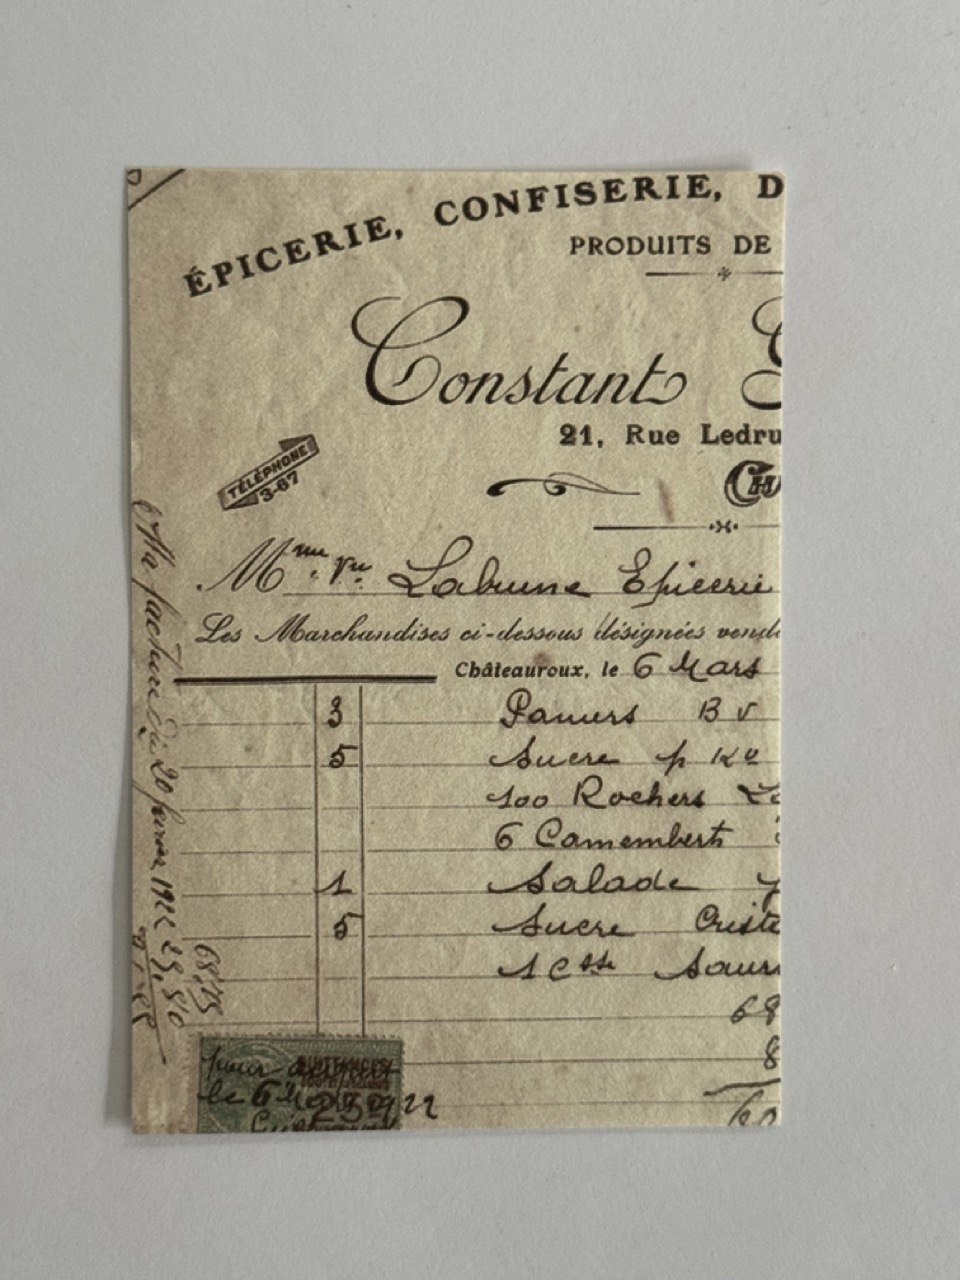 ÉPICERIE, CONFISERIE, D
PRODUITS DE
Constant
21, Rue Ledru
TÉLÉPHONE
3-67
Mme Vve Labrune Epicerie
Les Marchandises ci-dessous désignées vend
Châteauroux, le 6 Mars
3 Paniers B v
5 Sucre p Ko
100 Rochers
6 Camemberts
1 Salade
5 Sucre Criste
1 Csse Saur
68
8
Ma facture du 20 février 1922 29,510
68,75
QUITTANCES
pour acquit
le 6 Mars 1922
25